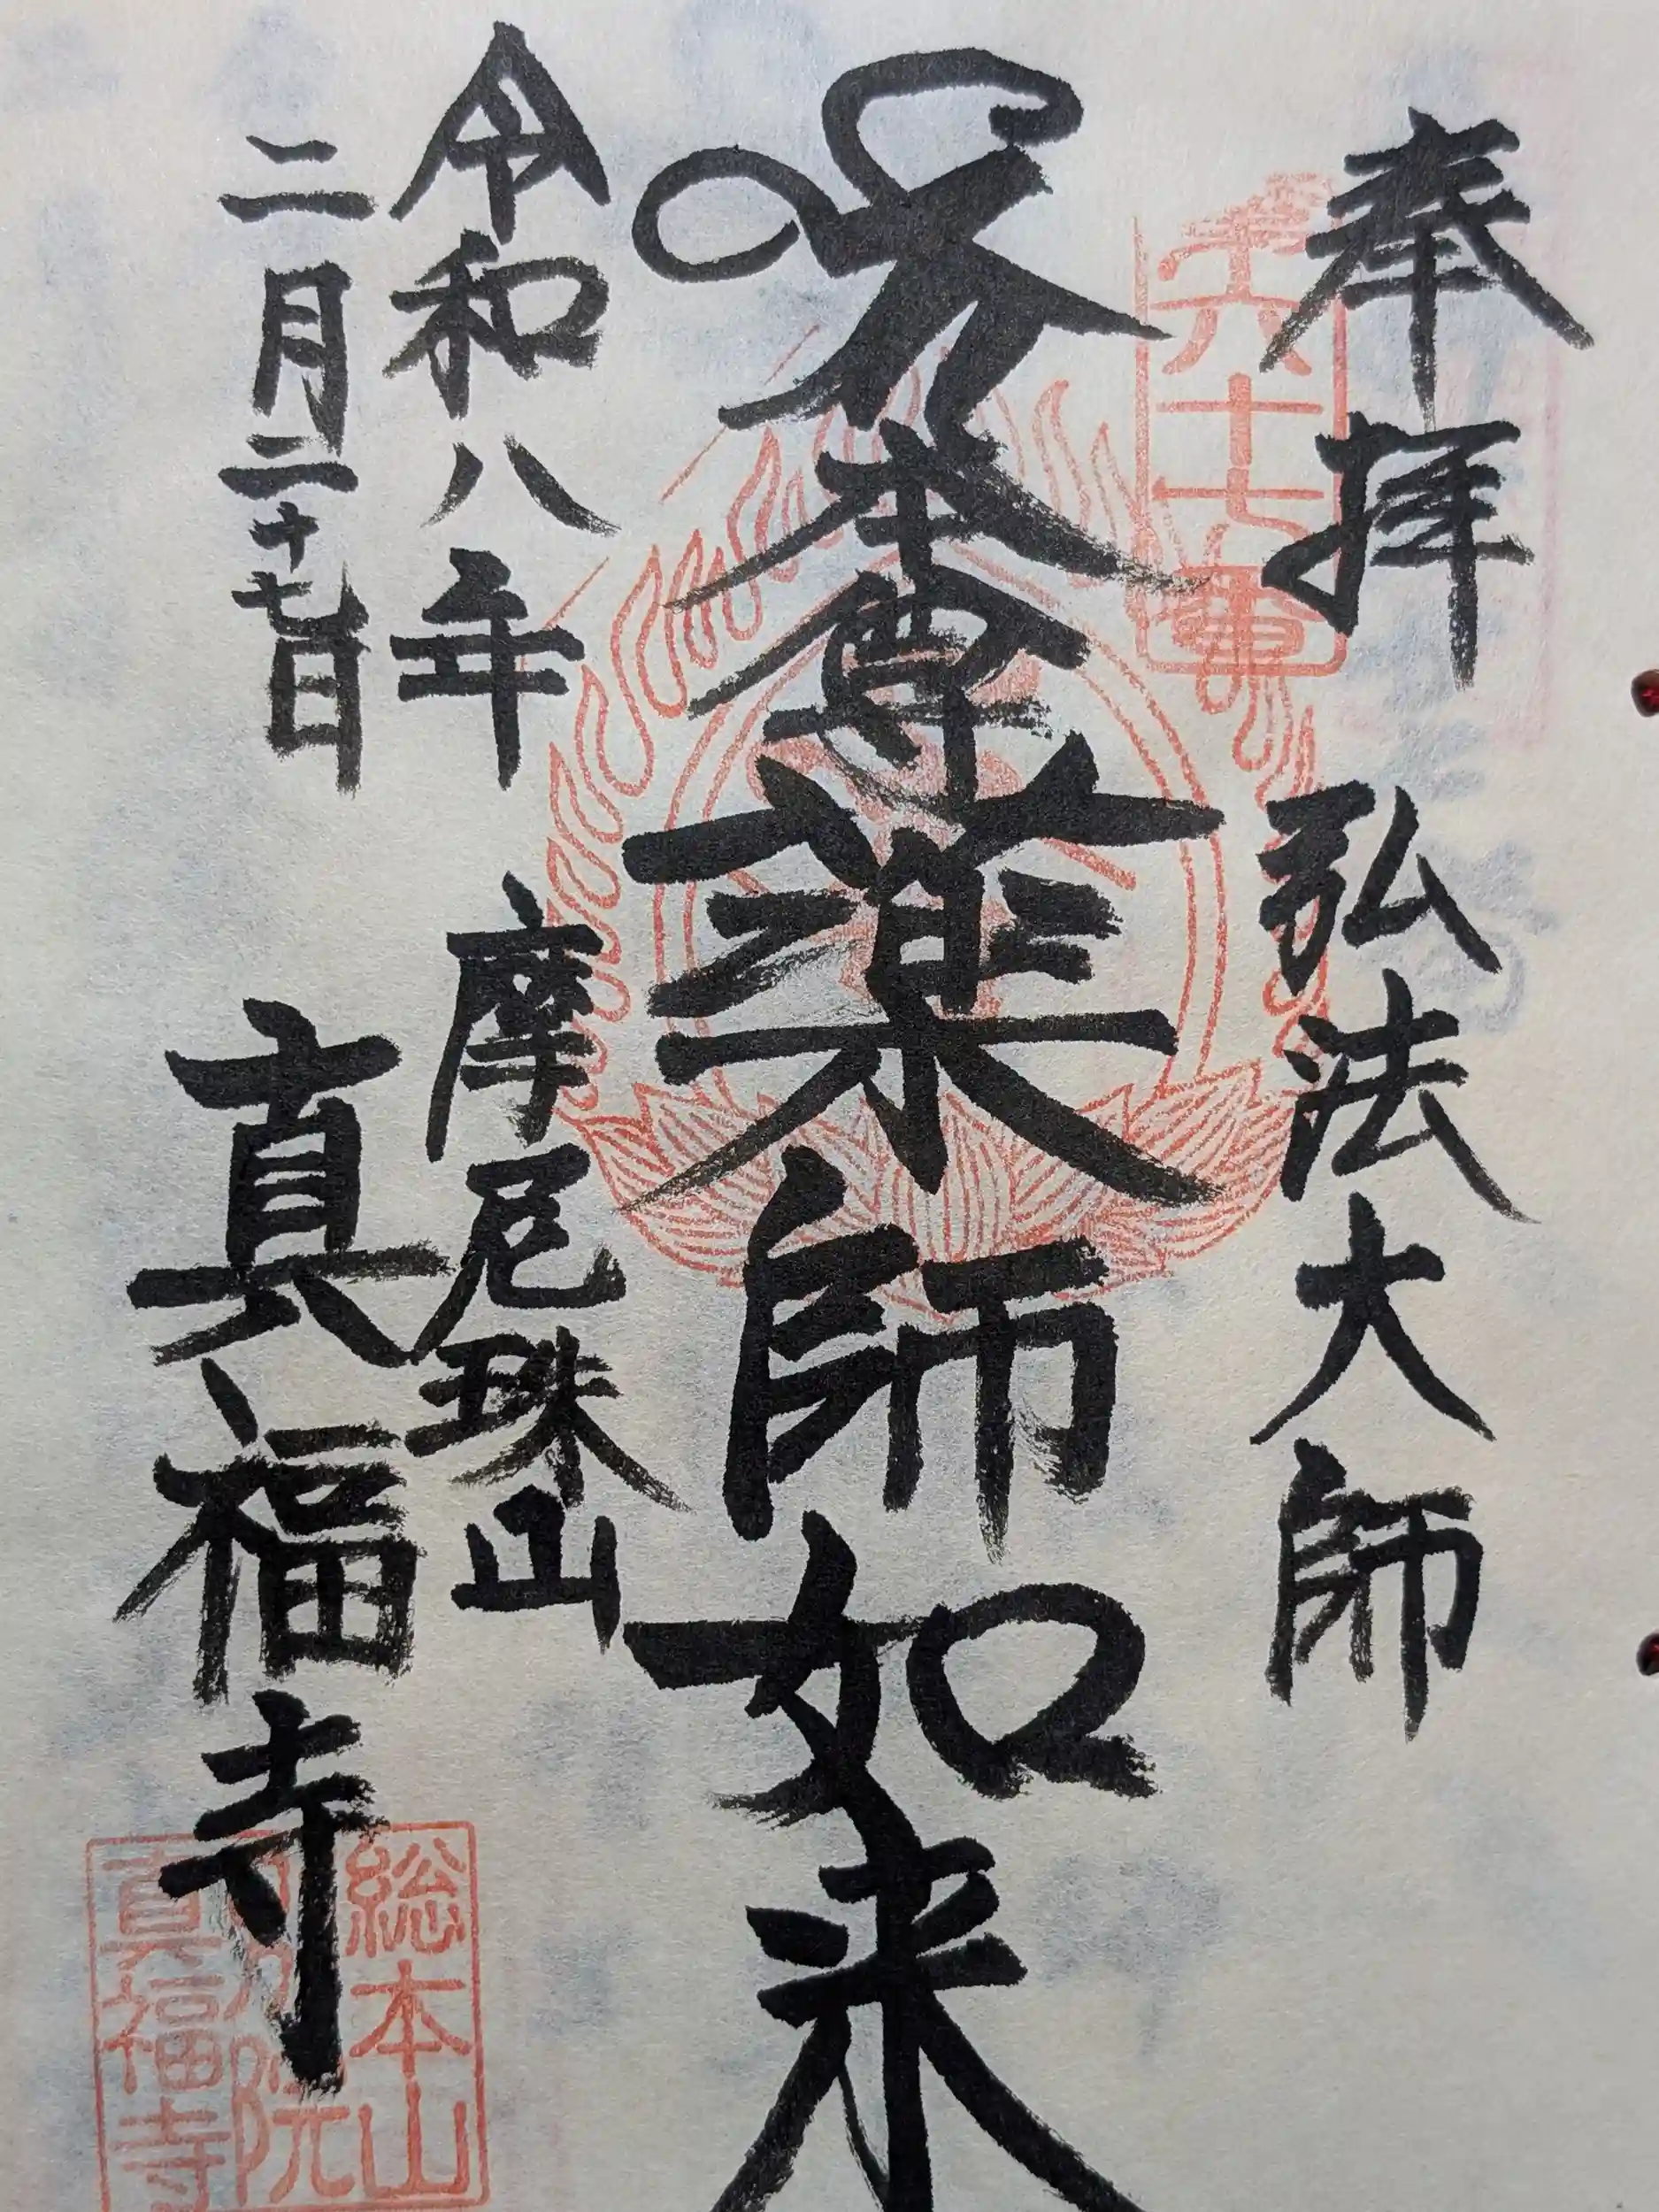 奉拝 弘法大師
六十七番
本尊薬師如来
令和八年 摩尼珠山
二月二十七日 真福寺
総本山
院
真福寺